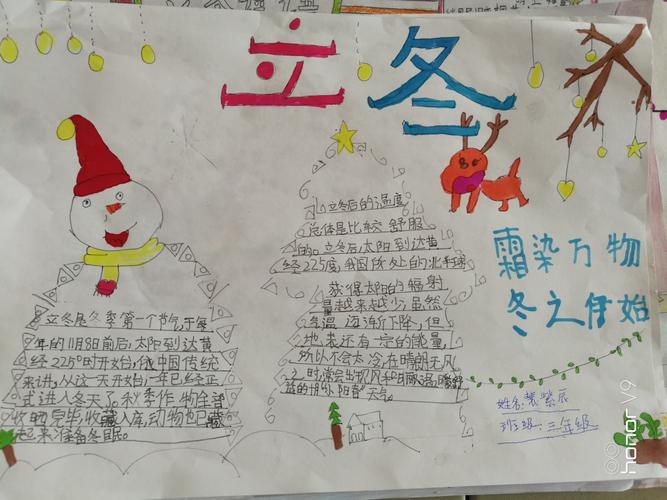 立冬
立冬是冬季第一个节气,于每
年的11月8日前后,太阳到达黄
经225°时开始,我中国传统
来讲,从这一天开始,一年已经正
式进入冬天了,秋季作物全部
收晒完毕,收藏入库,动物也已藏
起来准备冬眠。
立冬后的温度
总体是比较舒服
的。立冬后,太阳到达黄
经225度,我国所处的北半球
获得太阳的辐射
量越来越少,虽然
气温逐渐下降,但
地表还有一定的能量,
所以不会太冷,在晴朗无风
之时,常会出现风和日丽、温暖舒
适的"小阳春"天气。
霜染万物
冬之伊始
姓名:紫辰
班级:三年级
honor V9